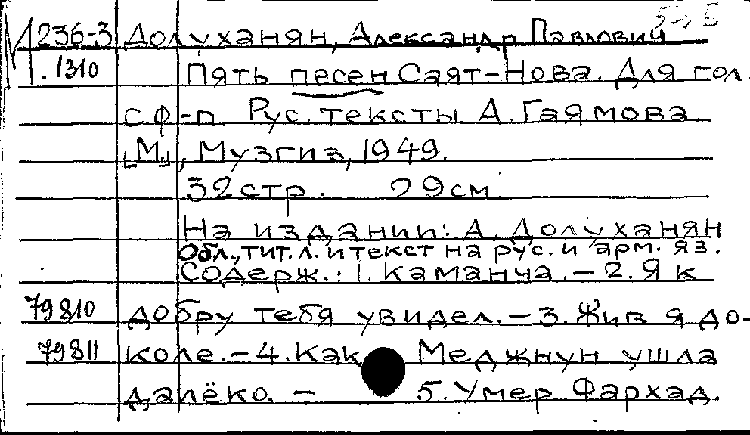 М 236-3 Долуханян, Александр Павлович
1310 Пять песен Саят-Нова. Для гол.
с ф-п. Рус. тексты А. Гаямова
[М.], Музгиз, 1949.
32 стр. 29 см
На издании: А. Долуханян
Обл., тит. л. и текст на рус. и арм. яз.
Содерж.: 1. Каманча. – 2. Я к
79810 добру тебя увидел. – 3. Жив я до-
79811 коле. – 4. Как Меджнун ушла
далёко. – 5. Умер Фархад.